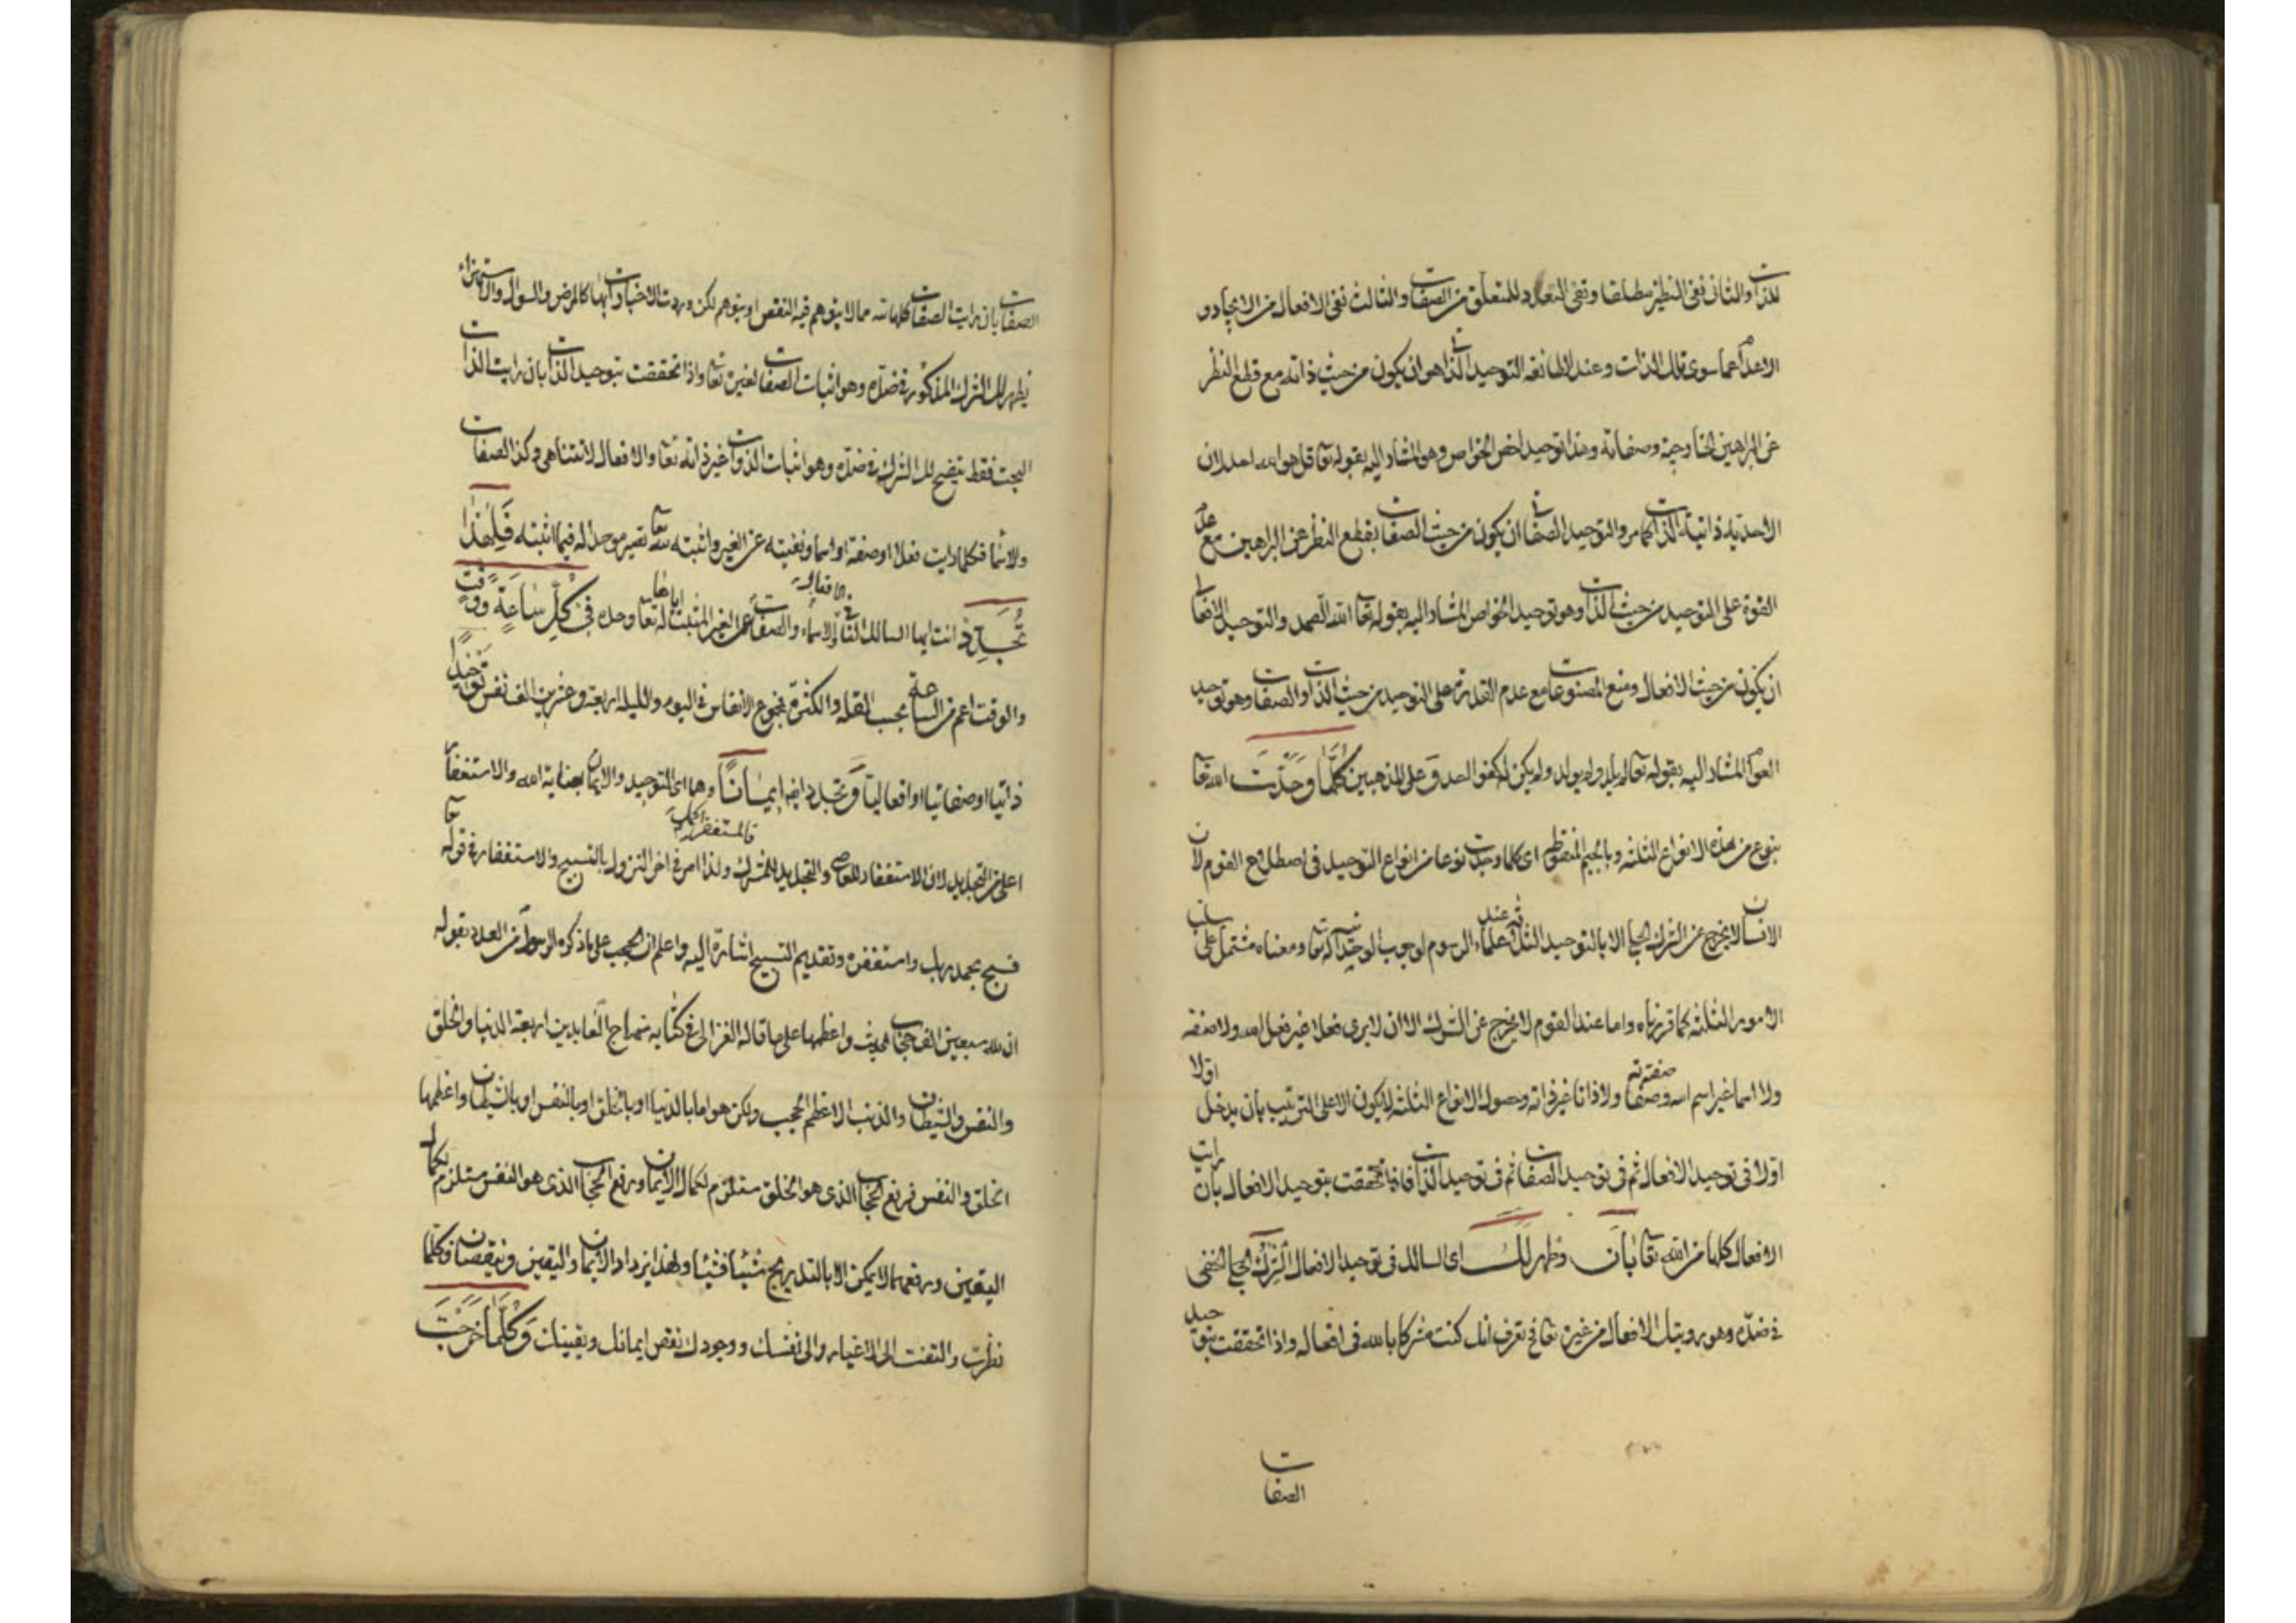 للذات والثانى نفى النظير مطلقا ونفى التعدد للمتعلق من الصفات والثالث نفى الافعال من الايجاد و
الاعدام عما سوى تلك الذات وعند الطائفة التوحيد الذاتى هو ان يكون من حيث ذاته مع قطع النظر
عن البراهين الخارجية وصفاته وهذا توحيد اخص الخواص وهو المشار اليه بقوله تعا قل هو الله احد لان
الاحدية ذاتية الذات كما مر والتوحيد الصفاتى ان يكون من حيث الصفات بقطع النظر عن البراهين مع عدم
القوة على التوحيد من حيث الذات وهو توحيد الخواص المشار اليه بقوله تعا الله الصمد والتوحيد الافعالى
ان يكون من حيث الافعال ومنع المصنوعات مع عدم القدرة على التوحيد من حيث الذات والصفات وهو توحيد
العوام المشار اليه بقوله تعا لم يلد ولم يولد ولم يكن له كفوا احد وعلى المذهبين كُلَّمَا وَحَّدْتَ الله تعا
بنوع من هذه الانواع الثلثة وبالجيم المنقوطة اى كلما وجدت نوعا من انواع التوحيد فى اصطلاح القوم لان
الانسان لا يخرج عن الشرك الجلى الا بالتوحيد الثلثة عند علماء الرسوم لوجوب توحيده تعا ومعناه مشتمل على
الامور الثلثة كما قررناه واما عند القوم لا يخرج عن الشرك الا ان لا يرى فعلا غير فعل الله ولا صفة
ولا اسما غير اسم الله وصفاته صفته ولا ذاتا غير ذاته وحصول الانواع الثلثة لا يكون الا على الترتيب بان يدخل اولا
اولا فى توحيد الافعال ثم فى توحيد الصفات ثم فى توحيد الذات فاذا تحققت بتوحيد الافعال بان رايت
الافعال كلها من الله تعا بَانَ وظهر لَكَ اى السالك فى توحيد الافعال الشِّرْكُ الجلى الخفى
فى ضده وهو رويتك الافعال من غيره تعا فتعرف انك كنت مشركا بالله فى افعاله واذا تحققت بتوحيد
الصفات
الصفات بان رايت الصفات كلها لله مما لا يتوهم فيه النقص او يتوهم لكن وردت الاخبار بها كالمرض والسوال والاستهزاء
يظهر لك الشرك المذكور فى ضده وهو اثبات الصفات لغيره تعا واذا تحققت بتوحيد الذات بان رايت الذات
البحت فقط يتضح لك الشرك فى ضده وهو اثبات الذوات غير ذاته تعا والافعال لا تتناهى وكذا الصفات
ولاسما فكلما رايت فعلا او صفة او اسما ونفيته عن الغير واثبته لله تعا تصير موحدا له فيما اثبته فَلِهٰذَا
تُجَدِّدُ انت ايها السالك النافى الافعال والاسماء والصفات عن الغير المثبت اياها له تعا وحده فى كُلِّ سَاعَةٍ وَوَقْتٍ
والوقت اعم من الساعة بحسب القلة والكثرة فمجموع الانفاس فى اليوم والليلة اربعة وعشرين الف نفس تَوْحِيدًا
ذاتيا او صفاتيا او افعاليا وَ تجدد ايضا اِيمَانًا وهما اى التوحيد والايمان بعناية الله والاستغفار
اعلى من التجديد لان الاستغفار للمعاصى والتجديد للشرك ولذا امر فى اخر النزول بالتسبيح والاستغفار فى قوله تعا
فسبح بحمد ربك واستغفره وتقديم التسبيح اشارة اليه واعلم ان الحجب على ما ذكره الرسول من العدد بقوله
ان لله سبعين الف حجاب الحديث واعظمها على ما قاله الغزالى فى كتابه منهاج العابدين اربعة الدنيا والخلق
والنفس والشيطان والذنب الاعظم الحجب ولكن هو اما بالدنيا او بالخلق او بالنفس او بالشيطان واعظمها
الخلق والنفس فرفع الحجاب الذى هو الخلق مستلزم لكمال الايمان ورفع الحجاب الذى هو النفس مستلزم لكمال
اليقين ورفعهما لا يمكن الا بالتدريج شيئا فشيئا ولهذا يزداد الايمان واليقين وينقصان فكلما
نظرت والتفت الى الاغيار والى نفسك ووجودك نقص ايمانك ويقينك وَكُلَّمَا خَرَجْتَ